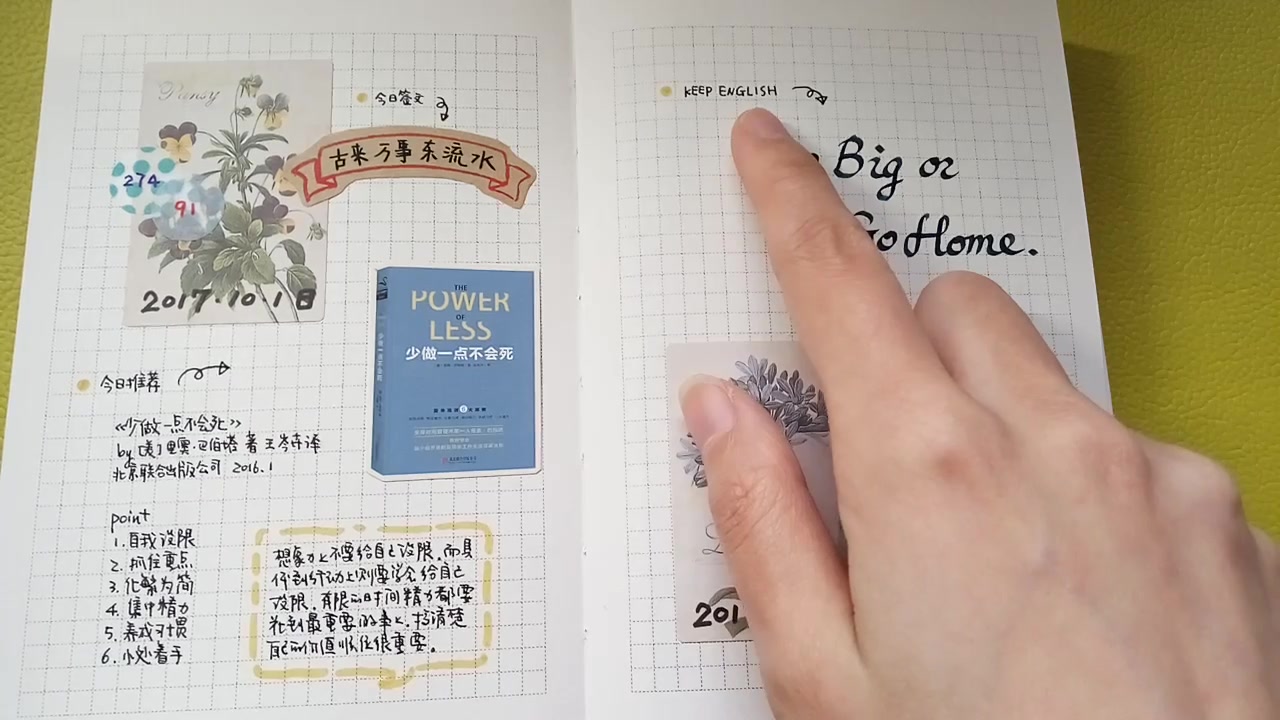 Pansy
274
91
2017.10.1日
今日签文
古来万事东流水
THE
POWER
OF
LESS
少做一点不会死
少做一点不会死
今日推荐
《少做一点不会死》
by [美]里奥·巴伯塔 著 王岑卉 译
北京联合出版公司 2016.1
point
1. 自我设限
2. 抓住重点
3. 化繁为简
4. 集中精力
5. 养成习惯
6. 小处着手
想象力上不要给自己设限,而具
体到行动上则要学会给自己
设限。有限的时间精力都要
花到最重要的事上,搞清楚
自己的价值顺位很重要。
KEEP ENGLISH
Big or
Go Home.
201